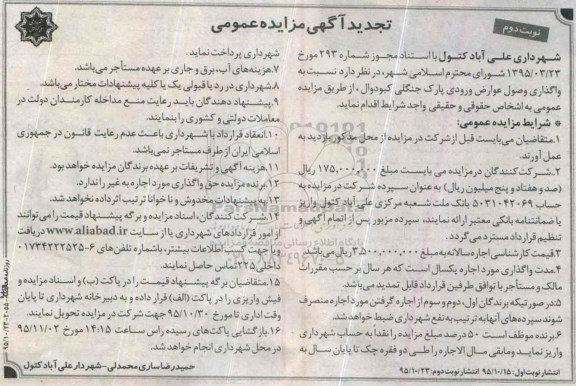 تجدید آگهی مزایده عمومی
نوبت دوم
شهرداری علی آباد کتول با استناد مجوز شماره ۲۹۳ مورخ
۱۳۹۵/۰۳/۲۳ شورای محترم اسلامی شهر، در نظر دارد نسبت به
واگذاری وصول عوارض ورودی پارک جنگلی کبودوال، از طریق مزایده
عمومی به اشخاص حقوقی و حقیقی واجد شرایط اقدام نماید.
شرایط مزایده عمومی:
۱. متقاضیان می‌بایست قبل از شرکت در مزایده از محل مذکور بازدید به
عمل آورند.
۲. شرکت کنندگان در مزایده می بایست مبلغ ۱۷۵,۰۰۰,۰۰۰ ریال
(صد و هفتاد و پنج میلیون ریال) به عنوان سپرده شرکت در مزایده به
حساب ۵۰۳۱۰۴۲۰۶۹ بانک ملت شعبه مرکزی علی آباد کتول واریز
یا ضمانتنامه بانکی معتبر ارائه نمایند، سپرده مزبور پس از اتمام آگهی و
تنظیم قرارداد مسترد می‌گردد.
۳. قیمت کارشناسی اجاره سالانه به مبلغ ۳,۵۰۰,۰۰۰,۰۰۰ ریال می‌باشد.
۴. مدت واگذاری مورد اجاره یکسال است که هر سال بر حسب مقررات
مالک و مستأجر با توافق طرفین قرارداد قابل تمدید می‌باشد.
۵. در صورتیکه برندگان اول، دوم و سوم از اجاره کردن مورد اجاره منصرف
شوند سپرده‌های آنها به ترتیب به نفع شهرداری ضبط خواهد شد.
۶. برنده موظف است ۵۰ درصد مبلغ مزایده را نقداً به حساب شهرداری
واریز نماید و مابقی مال الاجاره را طی دو فقره چک تا پایان سال به
شهرداری پرداخت نماید.
۷. هزینه‌های آب، برق و جاری بر عهده مستأجر می‌باشد.
۸. شهرداری در رد یا قبولی یک یا کلیه پیشنهادات مختار می‌باشد.
۹. پیشنهاد دهندگان باید رعایت منع مداخله کارمندان دولت در
معاملات دولتی و کشوری را بنمایند.
۱۰. انعقاد قرارداد با شهرداری باعث عدم رعایت قانون در جمهوری
اسلامی ایران از طرف مستاجر نمی‌باشد.
۱۱. هزینه آگهی و تشریفات بر عهده برندگان مزایده خواهد بود.
۱۲. برنده مزایده حق واگذاری مورد اجاره به غیر را ندارد.
۱۳. به پیشنهادات مخدوش و ناخوانا ترتیب اثر داده نخواهد شد.
۱۴. شرکت کنندگان، اسناد مزایده و برگه پیشنهاد قیمت را می‌توانند
از امور قراردادهای شهرداری یا از سایت www.aliabad.ir دریافت
و یا جهت کسب اطلاعات بیشتر، با شماره تلفن‌های ۶-۰۱۷۳۴۲۲۲۵۲۵
داخلی ۲۲۵ تماس حاصل نمایند.
۱۵. متقاضیان برگه پیشنهاد قیمت را در پاکت (ب) و اسناد مزایده و
فیش واریزی را در پاکت (الف) قرار داده و به دبیرخانه شهرداری تا پایان
وقت اداری تا مورخ ۹۵/۱۰/۳۰ جهت شرکت در مزایده تحویل نمایند.
۱۶. بازگشایی پاکت‌های رسیده راس ساعت ۱۴:۱۵ مورخ ۹۵/۱۱/۰۲
در محل شهرداری انجام خواهد شد.
انتشار نوبت اول: ۹۵/۱۰/۱۵ انتشار نوبت دوم: ۹۵/۱۰/۲۳
حمیدرضا ساری محمدلی - شهردار علی آباد کتول